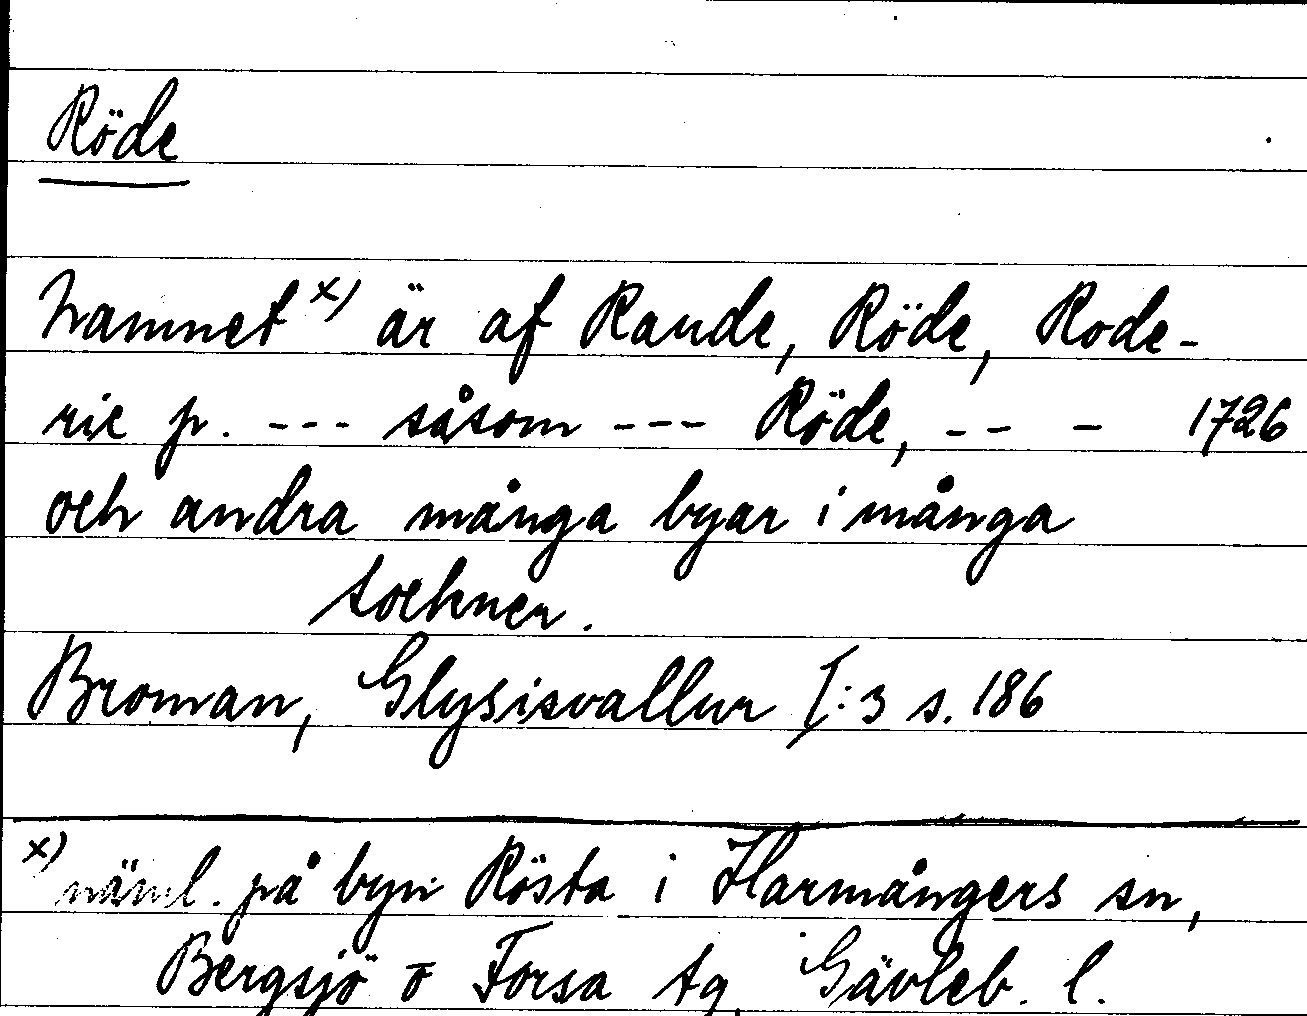 Röde
namnet x) är af Raude, Röde, Rode-
ric p. --- såsom --- Röde, -- - 1726
och andra många byar i många
sochner.
Broman, Glysisvallur I:3 s. 186
x) näml. på byn Rösta i Harmångers sn,
Bergsjö o Forsa tg, Gävleb. l.